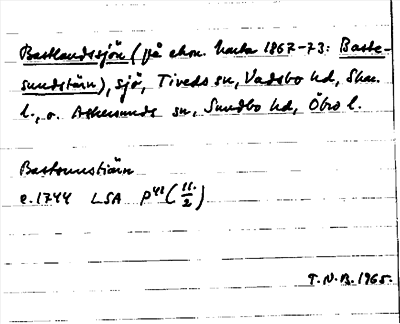 Bastlandssjön (på ekon. karta 1867-73: Baste-
sundstärn), sjö, Tiveds sn, Vadsbo hd, Skar.
l., o. Askersunds sn, Sundbo hd, Öbro l.
Bastsunnstiärn
c. 1744 LSA P41 (11/2)
T.N.B. 1965.